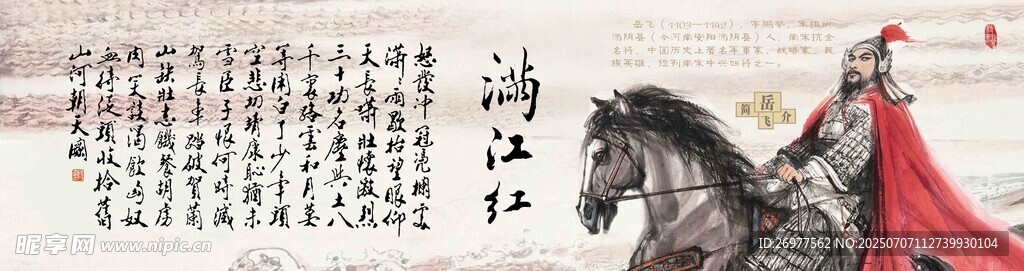 岳飞（1103—1142），字鹏举，宋相州
汤阴县（今河南安阳汤阴县）人，南宋抗金
名将，中国历史上著名军事家、战略家、民
族英雄，位列南宋中兴四将之一。
岳飞
简介
满江红
怒發冲冠凭欄處
潇潇雨歇抬望眼仰
天長嘯壯懷激烈
三十功名塵與土八
千里路雲和月莫
等闲白了少年頭
空悲切靖康恥猶未
雪臣子恨何時滅
駕長車踏破賀蘭
山缺壯志饑餐胡虜
肉笑談渴飲匈奴
血待從頭收拾舊
山河朝天闕
昵享网 www.nipic.cn
ID:26977562 NO:20250707112739930104